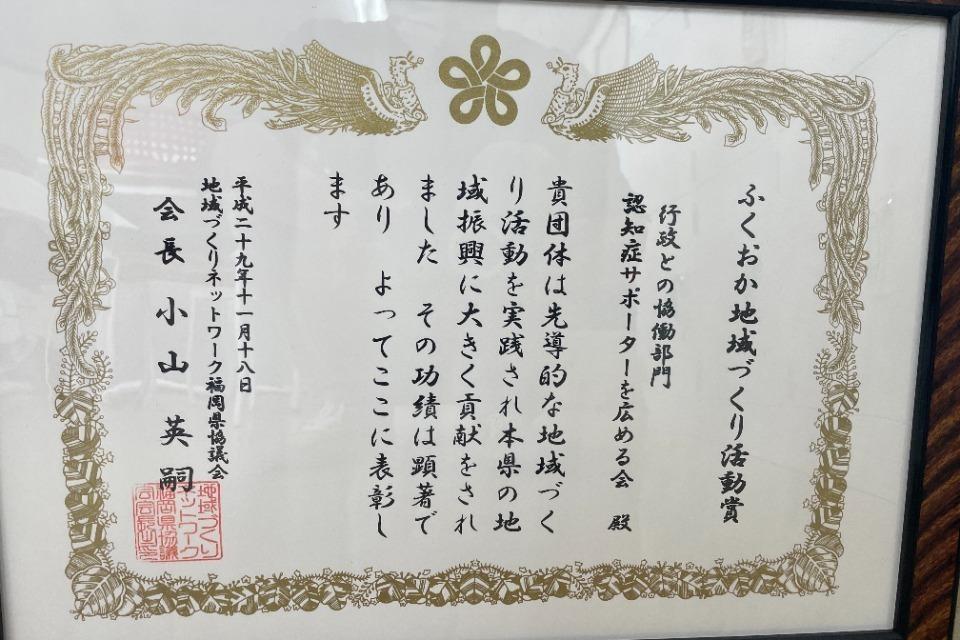 ふくおか地域づくり活動賞
行政との協働部門
認知症サポーターを広める会 殿
貴団体は先導的な地域づく
り活動を実践され本県の地
域振興に大きく貢献をされ
ました その功績は顕著で
あり よってここに表彰し
ます
平成二十九年十一月十八日
地域づくりネットワーク福岡県協議会
会長 小山英嗣
地域づくり
ネットワーク
福岡県協議
会会長之印